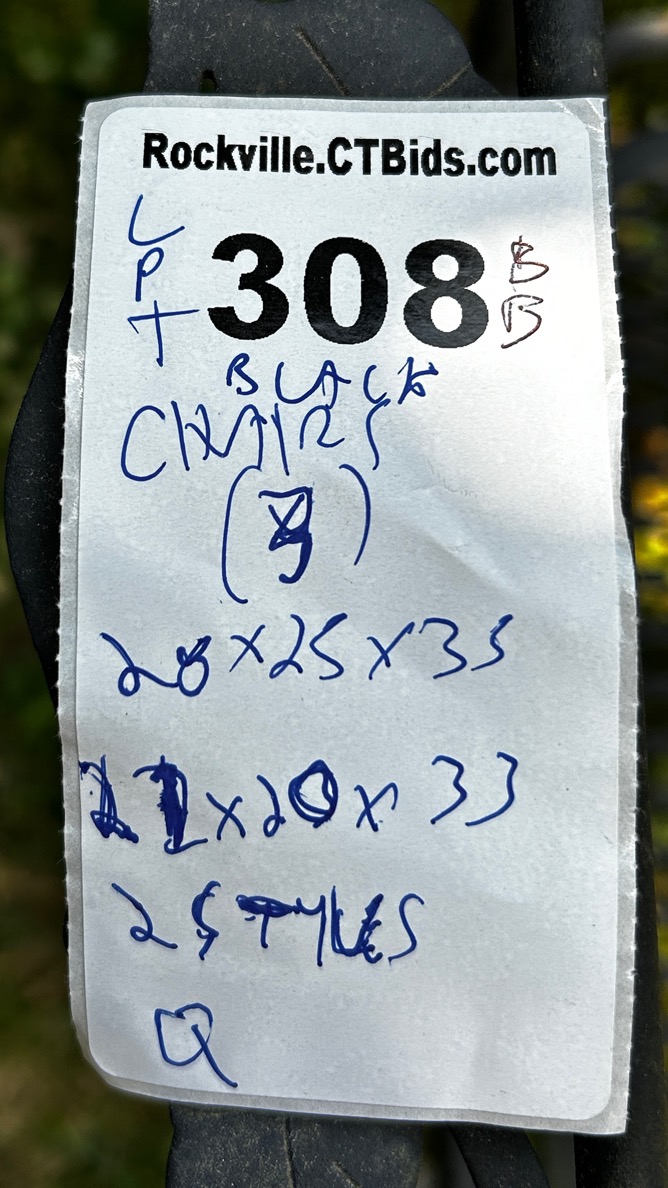 Rockville.CTBids.com
L
P
T
308
B
B
BLACK
CHAIRS
28 x 25 x 33
x 20 x 33
2 STYLES
Q